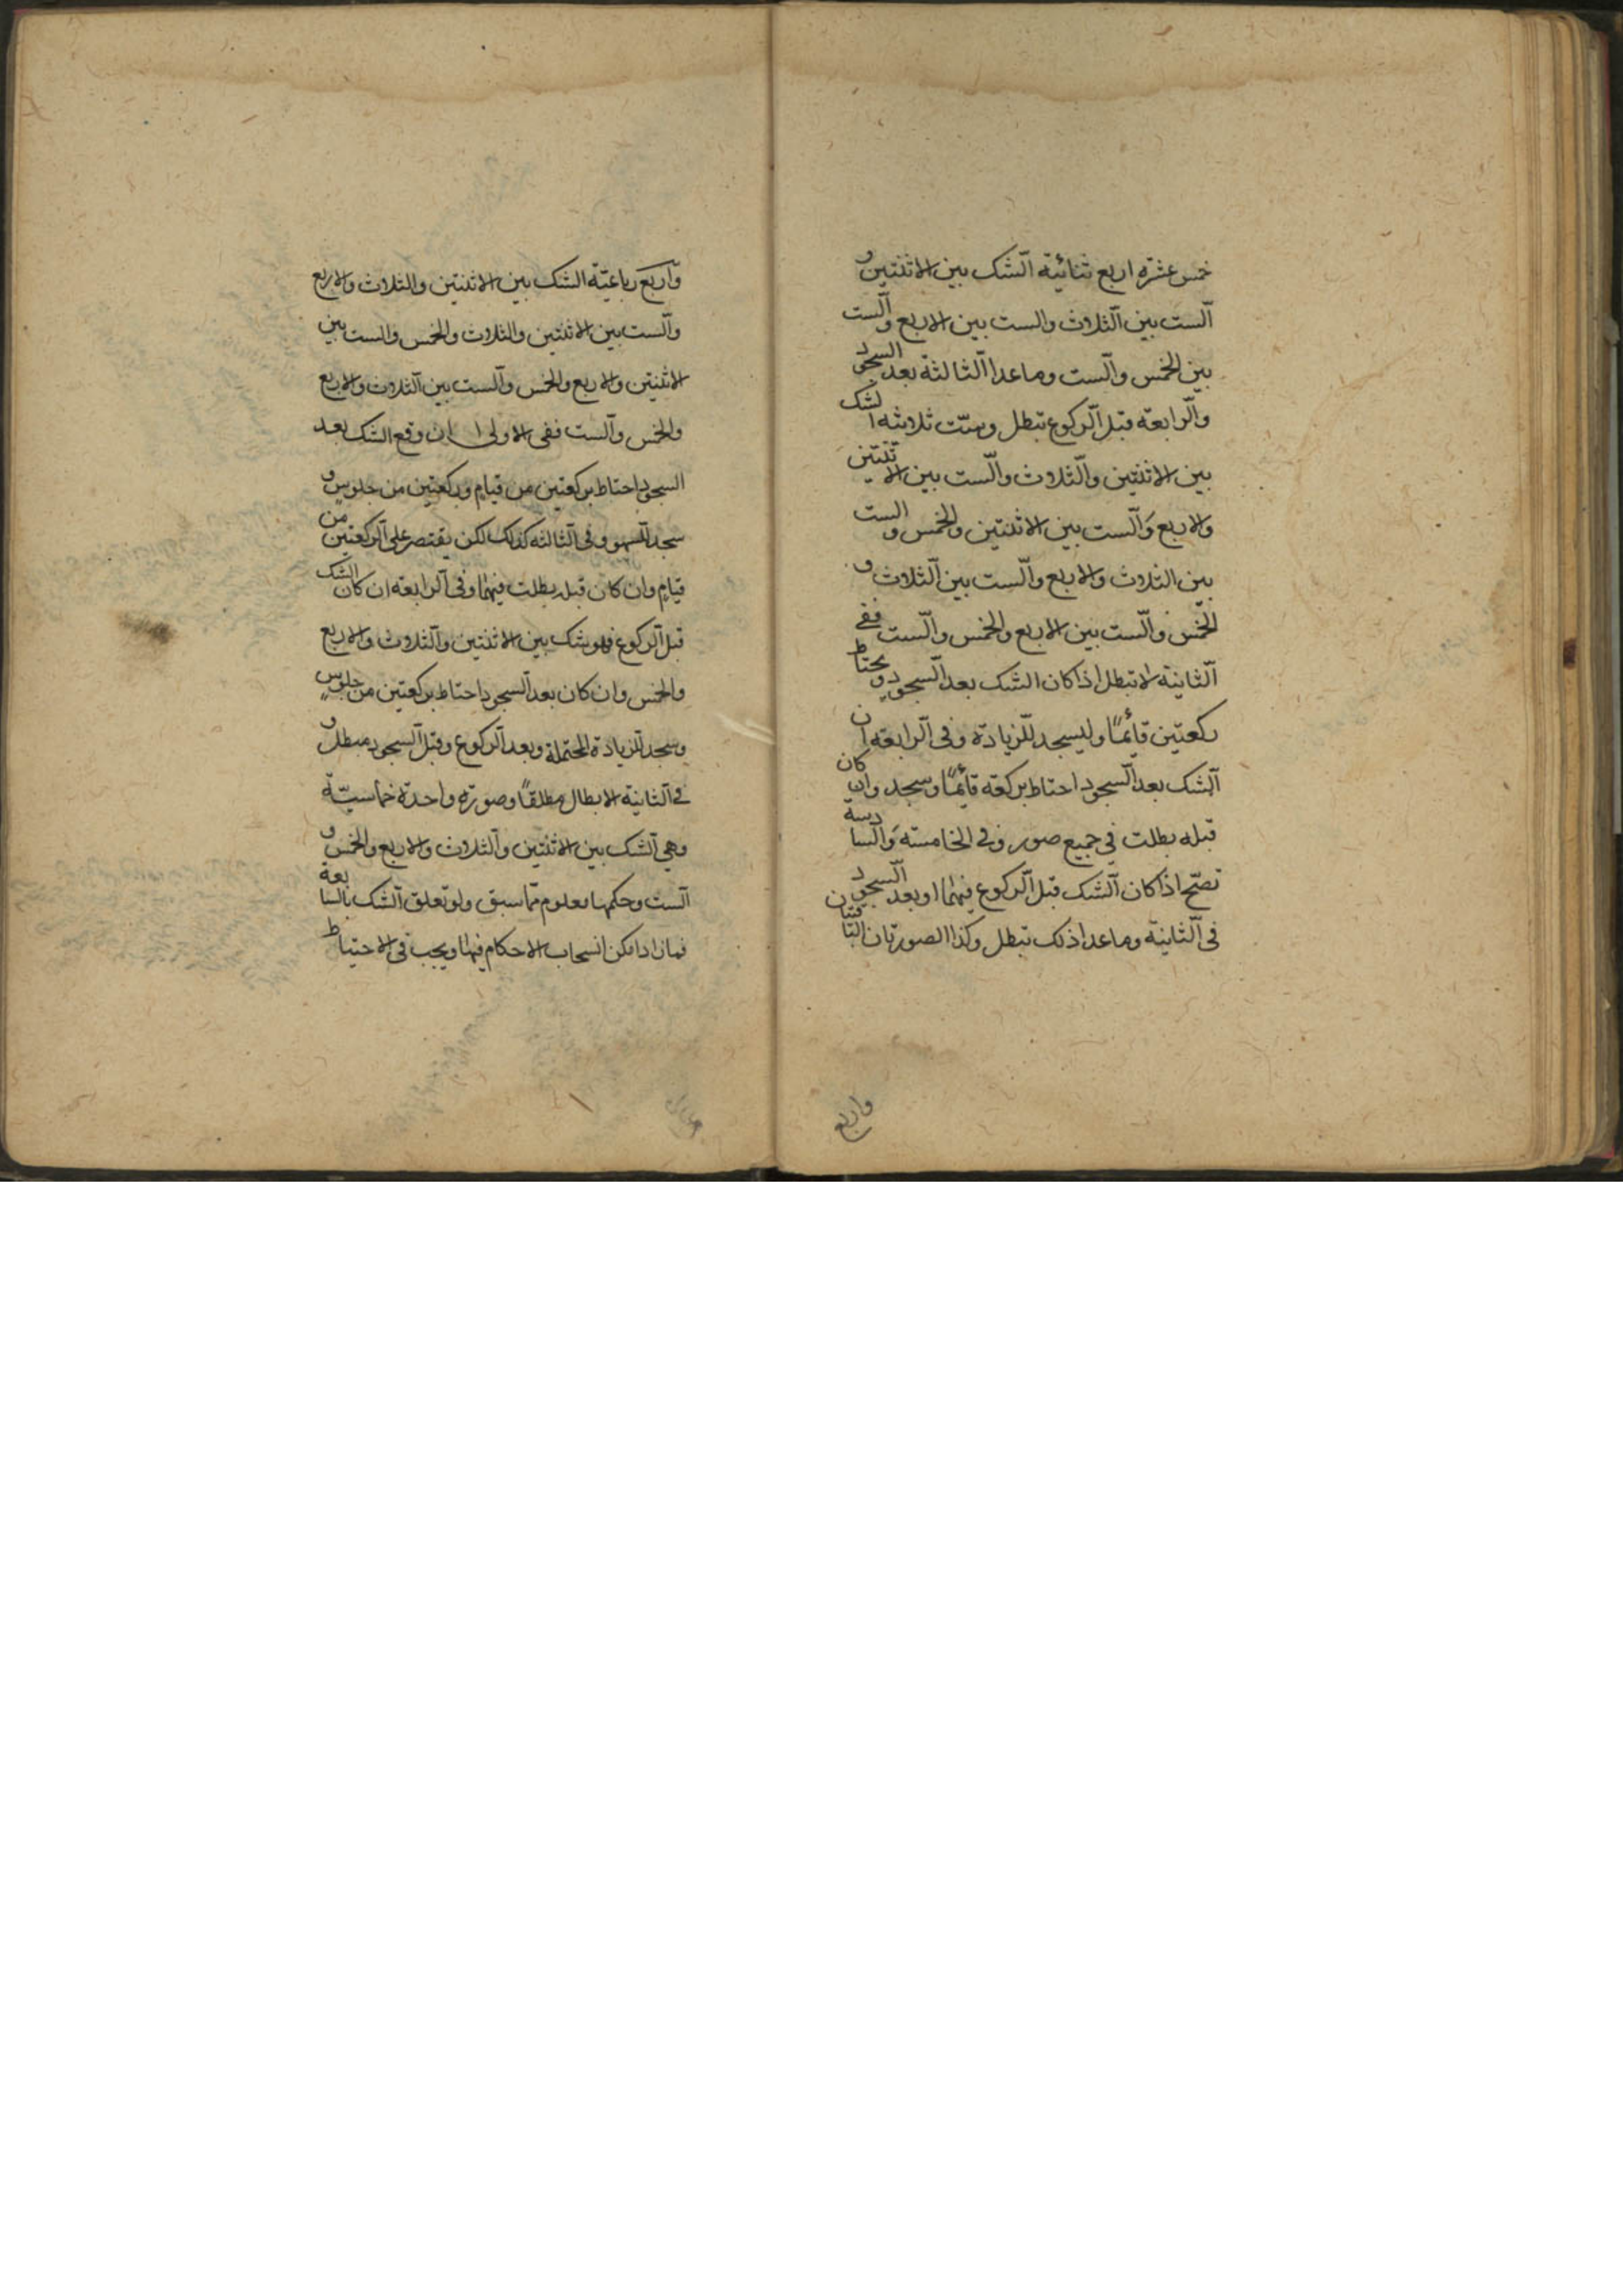 خمس عشرة اربع ثنائية الشك بين الاثنتين و
الست بين الثلاث والست بين الاربع والست
بين الخمس والست وما عدا الثالثة بعد السجود
والرابعة قبل الركوع تبطل وست ثلاثية الشك
بين الاثنتين والثلاث والست بين الاثنتين
والاربع والست بين الاثنتين والخمس والست
بين الثلاث والاربع والست بين الثلاث و
الخمس والست بين الاربع والخمس والست ففي
الثانية لا تبطل اذا كان الشك بعد السجود ويحتاط
ركعتين قائمًا وليسجد للزيادة وفي الرابعة ان
الشك بعد السجود احتاط بركعة قائمًا وسجد وان كان
قبله بطلت في جميع صور وفي الخامسة والسادسة
تصح اذا كان الشك قبل الركوع فيهما او بعد السجود
في الثانية وما عدا ذلك تبطل وكذا الصورتان
واربع
واربع رباعية الشك بين الاثنتين والثلاث والاربع
والست بين الاثنتين والثلاث والخمس والست بين
الاثنتين والاربع والخمس والست بين الثلاث والاربع
والخمس والست ففي الاولى ان وقع الشك بعد
السجود احتاط بركعتين من قيام وركعتين من جلوس و
سجد للسهو وفي الثالثة كذلك لكن يقتصر على الركعتين من
قيام وان كان قبله بطلت فيهما وفي الرابعة ان كان الشك
قبل الركوع فهو شك بين الاثنتين والثلاث والاربع
والخمس وان كان بعد السجود احتاط بركعتين من جلوس
وسجد للزيادة المحتملة وبعد الركوع وقبل السجود مبطل و
في الثانية الابطال مطلقًا وصورة واحدة خماسية
وهي الشك بين الاثنتين والثلاث والاربع والخمس و
الست وحكمها معلوم مما سبق ولو تعلق الشك بالسابعة
فما زاد امكن انسحاب الاحكام فيها ويجب في الاحتياط